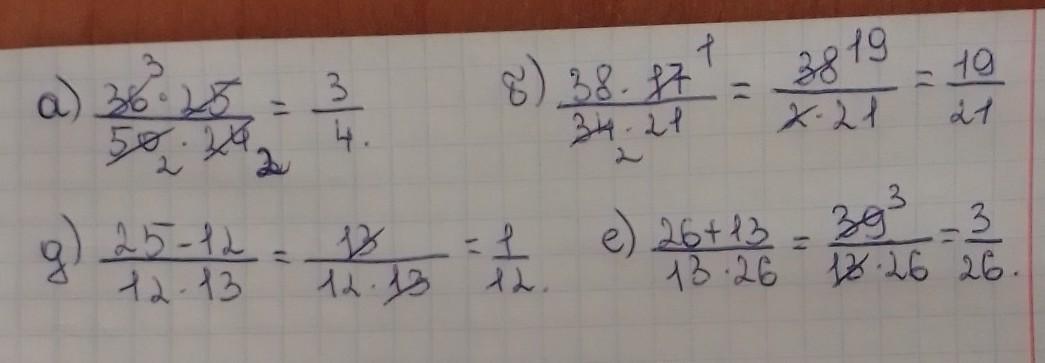 а) (36³ · 25)/(50₂ · 24₂) = 3/4. б) (38 · 17¹)/(34₂ · 21) = 38¹⁹/(2 · 21) = 19/21
д) (25 - 12)/(12 · 13) = 13/(12 · 13) = 1/12. е) (26 + 13)/(13 · 26) = 39³/(13 · 26) = 3/26.